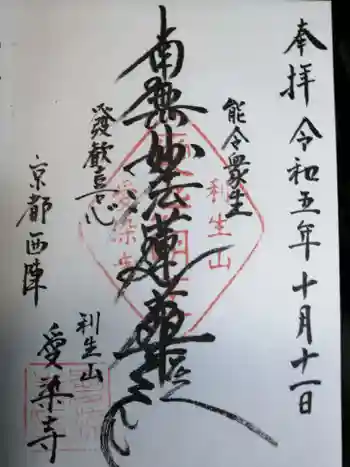 奉拝 令和五年十月十一日
能令衆生
南無妙法蓮華經
發歡喜心
利生山
愛染寺
京都西陣
利生山
愛染寺